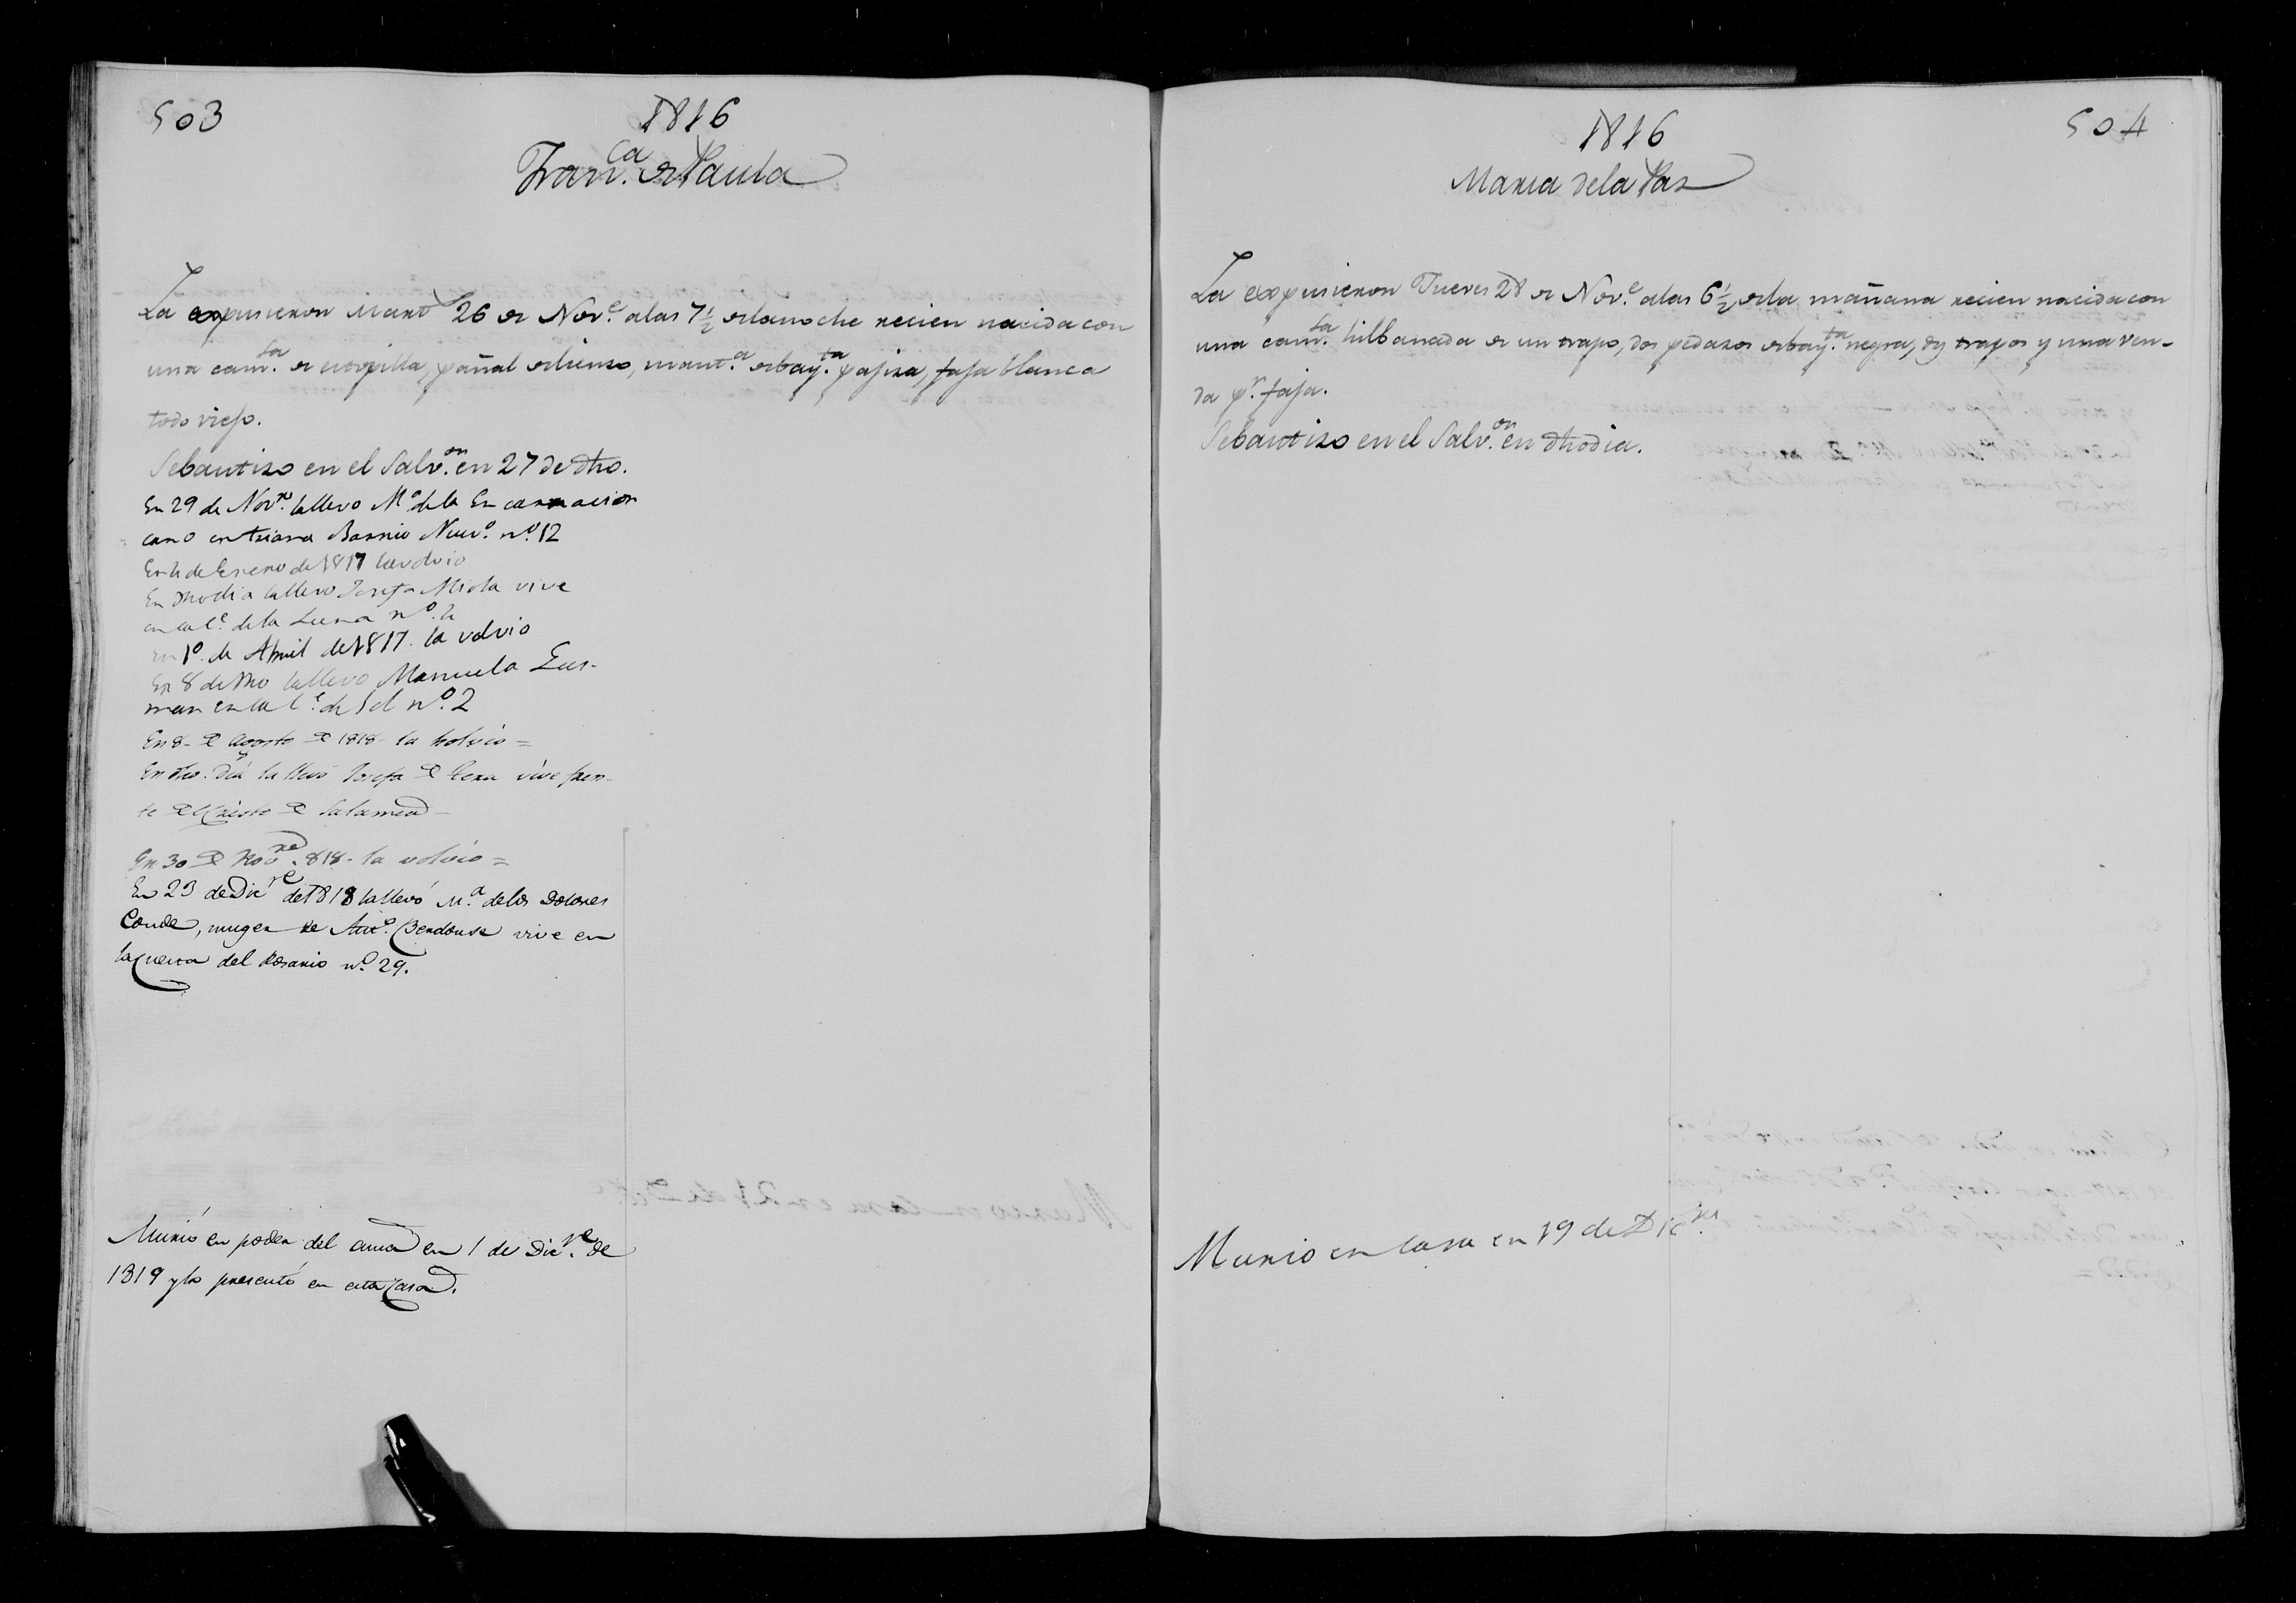 503
1816
Fran.ca de Paula
La expusieron Mart.s 26 de Nov.e alas 7½ delanoche recien nacida con
una cam.sa de estopilla, pañal delienzo, mant.a debay.ta pajiza, faja blanca
todo viejo.
Sebautizo en el Salv.or en 27 de dho.
En 29 de Nov.re lallevo M.a de la Encarnacion
cano en triana Barrio Nuev.o n.o 12
En 4 de Enero de 1817 lavolvio
En dho dia lallevo Josefa Miola vive
en la C.e de la Luna n.o 4
En 1.o de Abril de 1817. la volvio
En 8 de dho lallevo Manuela Gus-
man en la C.e de Sol n.o 2
En 8 de Agosto de 1818 la bolvio =
En dho. Dia la llevó Josefa de vive fren-
te del Cristo de Salamea
En 30 de Nov.re 818 - la volvio =
En 23 de Dic.re de 1818 lallevó M.a delos Dolores
Conde, muger de Ant.o vive en
la Cueva del Rosario n.o 29.
Murió en poder del ama en 1 de Dic.re de
1819 y lo presentó en esta Casa.
504
1816
Maria dela Paz
La expusieron Jueves 28 de Nov.e alas 6½ dela mañana recien nacida con
una cam.sa hilbanada de un trapo, dos pedazos debay.ta negra, dos trapos y una ven-
da p.r faja.
Sebautizo en el Salv.or en dho dia.
Murio en Casa en 19 de Dic.re